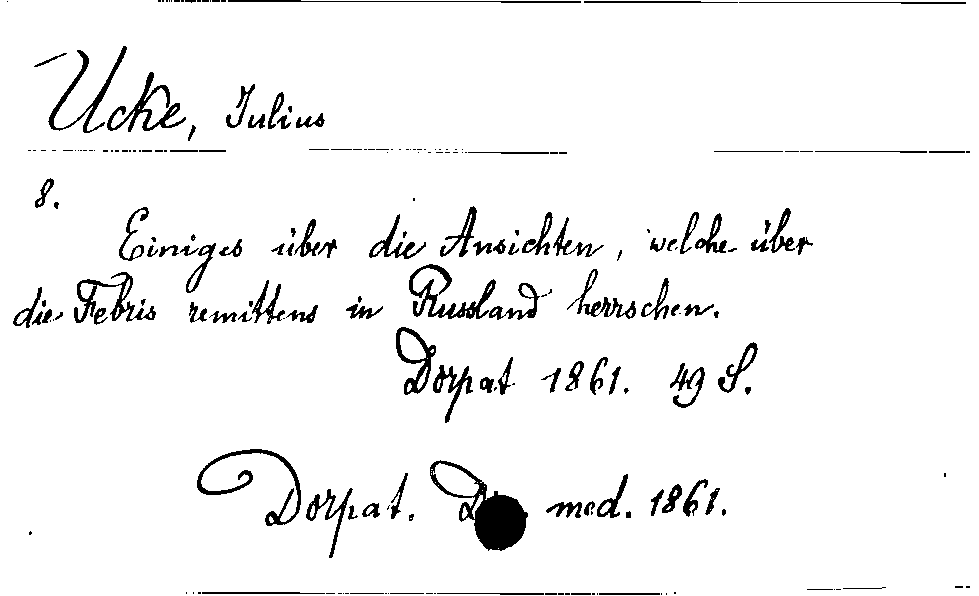 Ucke, Julius
8.
Einiges über die Ansichten, welche über
die Febris remittens in Russland herrschen.
Dorpat 1861. 49 S.
Dorpat. med. 1861.